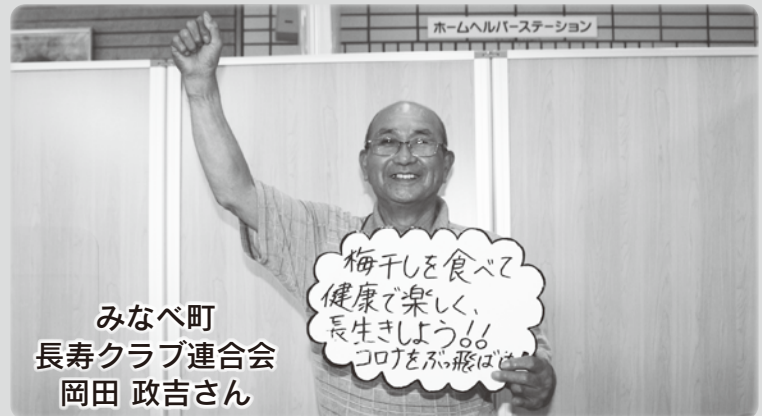 ホームヘルパーステーション
梅干しを食べて
健康で楽しく、
長生きしよう!!
コロナをぶっ飛ばせ
みなべ町
長寿クラブ連合会
岡田 政吉さん